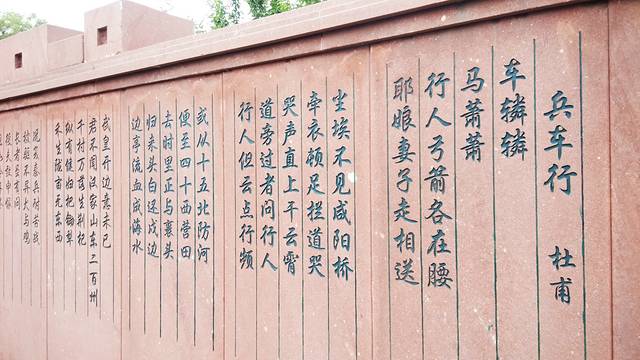 兵车行 杜甫
车辚辚
马萧萧
行人弓箭各在腰
耶娘妻子走相送
尘埃不见咸阳桥
牵衣顿足拦道哭
哭声直上干云霄
道旁过者问行人
行人但云点行频
或从十五北防河
便至四十西营田
去时里正与裹头
归来头白还戍边
边亭流血成海水
武皇开边意未已
君不闻汉家山东二百州
千村万落生荆杞
纵有健妇把锄犁
禾生陇亩无东西
况复秦兵耐苦战
被驱不异犬与鸡
长者虽有问
役夫敢申恨